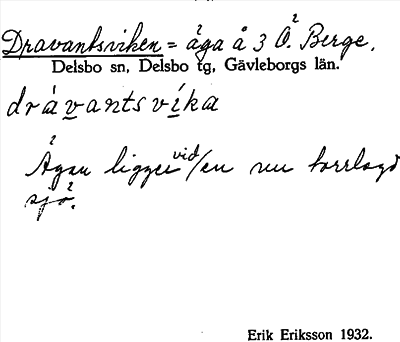 Dravantsviken = åga å 3 Ö. Berge.
Delsbo sn, Delsbo tg, Gävleborgs län.
drávantsvíka
Ågan ligger vid/en nu torrlagd
sjö.
Erik Eriksson 1932.